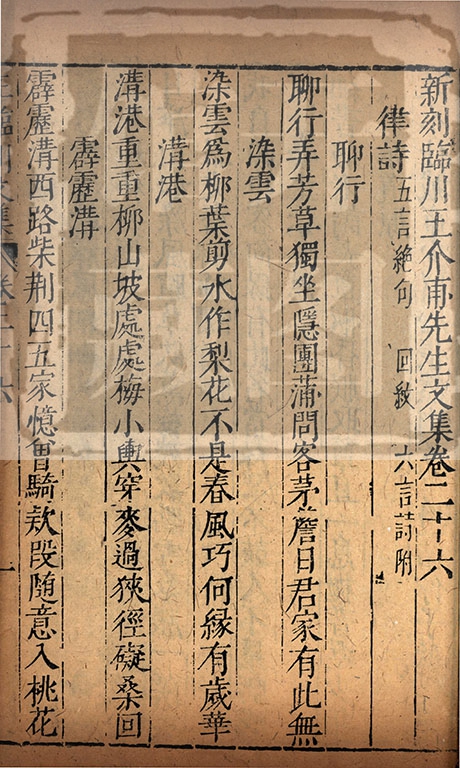 新刻臨川王介甫先生文集卷二十六
律詩 五言絶句 回紋 六言詩附
聊行
聊行弄芳草獨坐隱團蒲問客茅簷日君家有此無
染雲
染雲爲柳葉剪水作梨花不是春風巧何縁有歲華
溝港
溝港重重柳山坡處處梅小輿穿麥過狹徑礙桑回
霹靂溝
霹靂溝西路柴荆四五家憶曽騎欵段随意入桃花
一